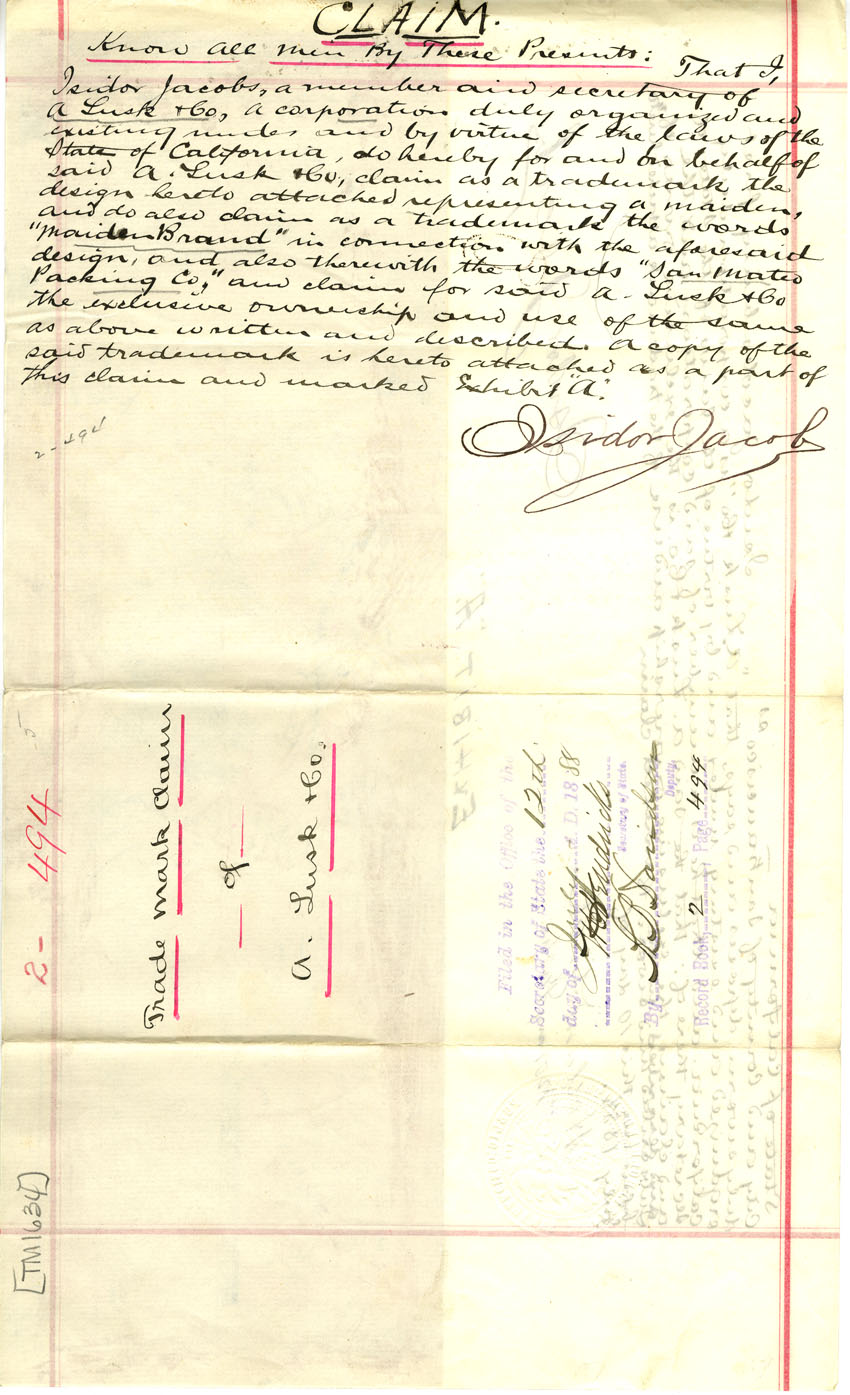 CLAIM.
Know all men By These Presents: That I,
Isidor Jacobs, a member and secretary of
A Lusk & Co, a corporation duly organized and
existing under and by virtue of the laws of the
State of California, do hereby for and on behalf of
said A. Lusk & Co, claim as a trademark the
design hereto attached representing a maiden,
and do also claim as a trademark the words
"Maiden Brand" in connection with the aforesaid
design, and also therewith the words "San Mateo
Packing Co," and claim for said A. Lusk & Co
the exclusive ownership and use of the same
as above written and described. A copy of the
said trademark is hereto attached as a part of
this claim and marked Exhibit "A".
Isidor Jacobs
2-494
Trade mark Claim
of
A. Lusk & Co.
2-494
5
[TM1634]
Filed in the Office of the
Secretary of State the 12th
day of July A.D. 1888
W C Hendricks
Secretary of State.
By
Deputy
Record Book 2 Page 494